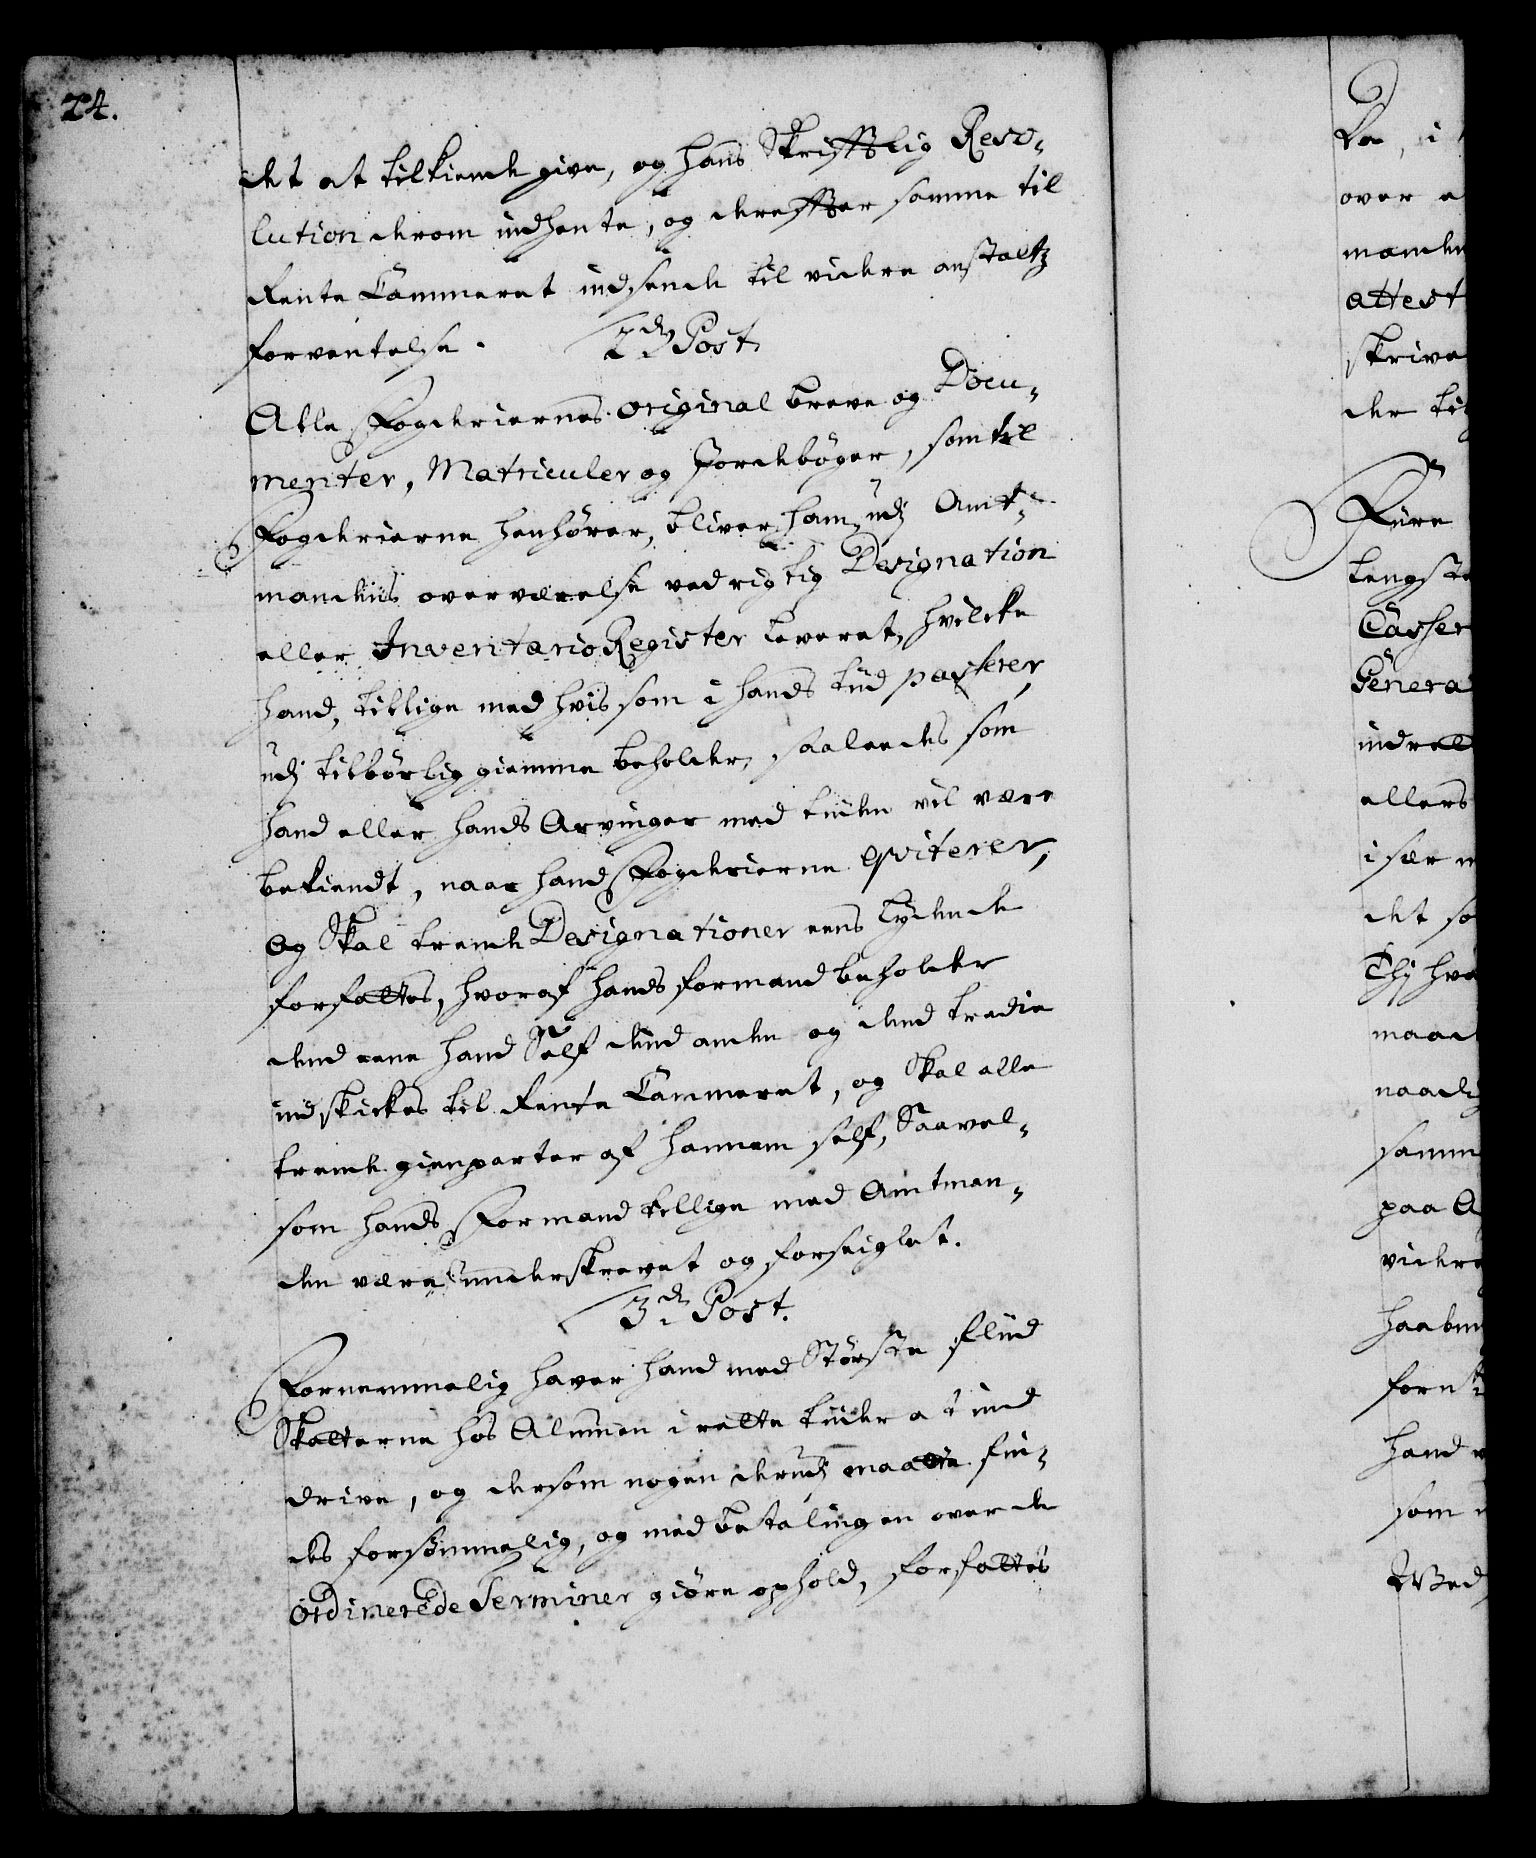 24.
det at tilkiende give, og hans Skrifftlig Reso-
lution derom indhente, og dereffter samme til
Rente Cammeret indsende til videre anstaltz
forventelse.
2den Post
Alle Fogderiernes original breve og Docu-
menter, Matriculer og Jordebøger, som til
Fogderierne henhører, bliver ham udj Amt-
mandens overværelse ved rigtig Designation
eller Inventario Register leveret, hvilcke
hand, tillige med hvis som i hands tiid passerer,
udj tilbørlig giemme beholder, saaledes som
hand eller hands Arvinger med tiiden vil være
bekiendt, naar hand Fogderierne qviterer,
og Skal trende Designationer eens lydende
forfattes, hvoraf hands formand beholder
dend eene hand Self dend anden og dend tredie
indskickes til Rente Cammeret, og Skal alle
trende gienparter af hannem self, Saavel-
som hands Formand tillige med Amtman-
den være underskrevet og forseiglet.
3die Post.
Fornemmelig haver hand med Største fliid
Skatterne hos Almuen i rette tiider at ind
drive, og dersom nogen derudj maatte fin-
des forsømmelig, og med betalingen over de
ordinerede Terminer giøre ophold, forfattes
De, i
over a
manden
attest
skrive
der til
Fiire
lengste
Casser
Genera
ind
ellers
i sær
det so
Thj hva
maade
naadig
samme
paa A
videre
haabe
forn
hand
som
Ved